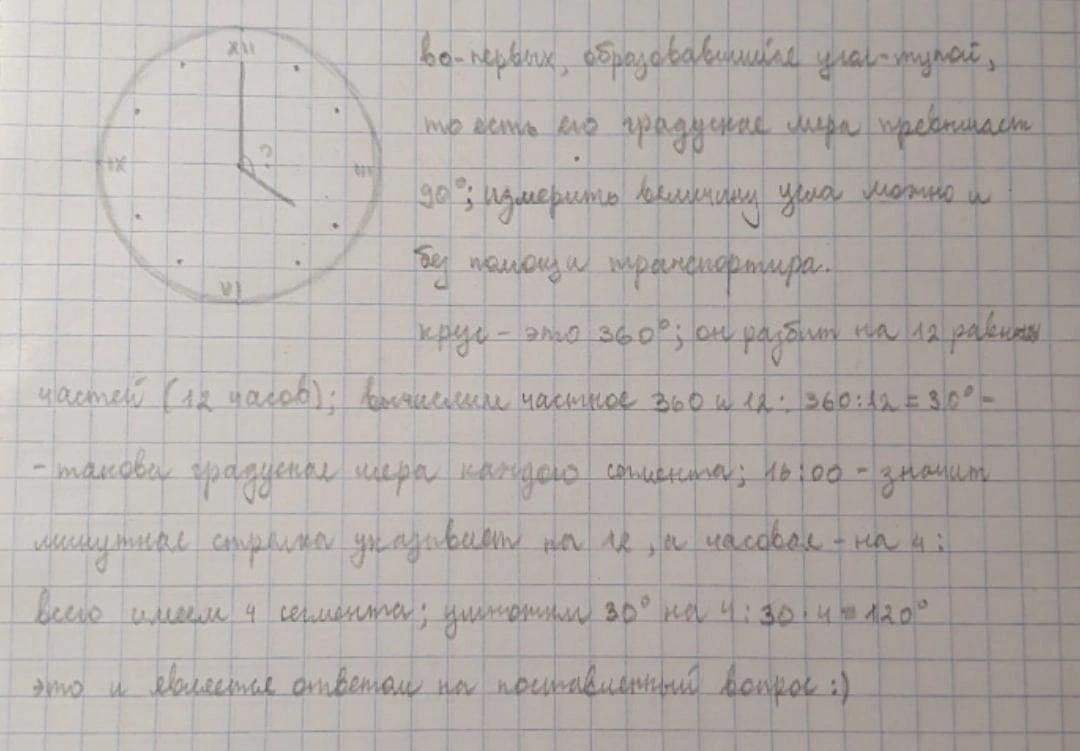 XII
IX
III
VI
?
во-первых, образовавшийся угол-тупой,
то есть его градусная мера превышает
90°; измерить величину угла можно и
без помощи транспортира.
круг - это 360°; он разбит на 12 равных
частей (12 часов); вычислим частное 360 и 12: 360:12=30°-
- такова градусная мера каждого сегмента; 16:00 - значит
минутная стрелка указывает на 12, а часовая - на 4:
всего имеем 4 сегмента; умножим 30° на 4: 30·4=120°
это и является ответом на поставленный вопрос :)